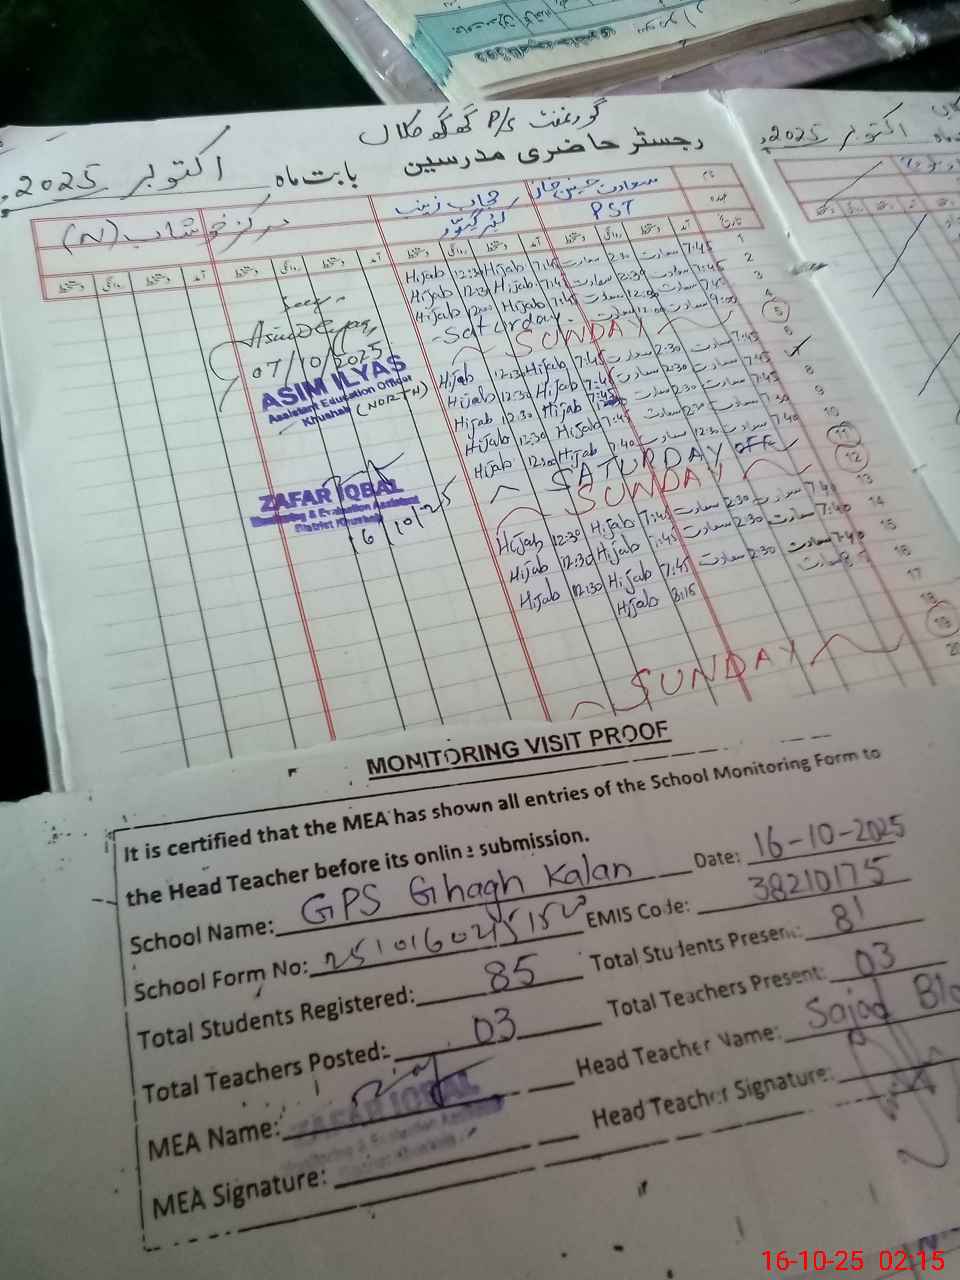 گورنمنٹ P/S گھگھ کلاں
رجسٹر حاضری مدرسین بابت ماہ اکتوبر 2025ء
اکتوبر 2025ء
نام
عہدہ
تاریخ
PST
حجاب زینب
مرکز خوشاب (N)
آمد دستخط روانگی دستخط آمد دستخط روانگی دستخط آمد دستخط روانگی دستخط آمد دستخط روانگی دستخط
1 7:45 سعادت 2:30 سعادت 7:45 Hijab 12:30 Hijab
2 7:45 سعادت 2:30 سعادت 7:45 Hijab 12:30 Hijab
3 7:45 سعادت 12:00 سعادت 7:45 Hijab 12:00 Hijab
4 9:00 سعادت 12:00 سعادت Saturday
5 SUNDAY
6 7:45 سعادت 2:30 سعادت 7:45 Hijab 12:30 Hijab
7:45 سعادت 2:30 سعادت 7:45 Hijab 12:30 Hijab
8 7:45 سعادت 2:30 سعادت 7:45 Hijab 12:30 Hijab
9 7:30 سعادت 2:30 سعادت 7:45 Hijab 12:30 Hijab
10 7:40 سعادت 12:30 سعادت 7:40 Hijab 12:00 Hijab
11 SATURDAY OFF
12 SUNDAY
13 7:40 سعادت 2:30 سعادت 7:45 Hijab 12:30 Hijab
14 7:40 سعادت 2:30 سعادت 7:45 Hijab 12:30 Hijab
15 7:40 سعادت 2:30 سعادت 7:45 Hijab 12:30 Hijab
16 سعادت Hijab 8:15
17
18
19 SUNDAY
20
Seen
07/10/2025
ASIM ILYAS
Assistant Education Officer
Khushab (NORTH)
ZAFAR IQBAL
Monitoring & Evaluation Assistant
District Khushab
16/10/25
MONITORING VISIT PROOF
It is certified that the MEA has shown all entries of the School Monitoring Form to
the Head Teacher before its online submission.
School Name: GPS Ghagh Kalan Date: 16-10-2025
School Form No: EMIS Code: 38210175
Total Students Registered: 85 Total Students Present: 81
Total Teachers Posted: 03 Total Teachers Present: 03
MEA Name: ZAFAR IQBAL Head Teacher Name: Sajad
Monitoring & Evaluation Assistant
District Khushab
MEA Signature: Head Teacher Signature:
16-10-25 02:15